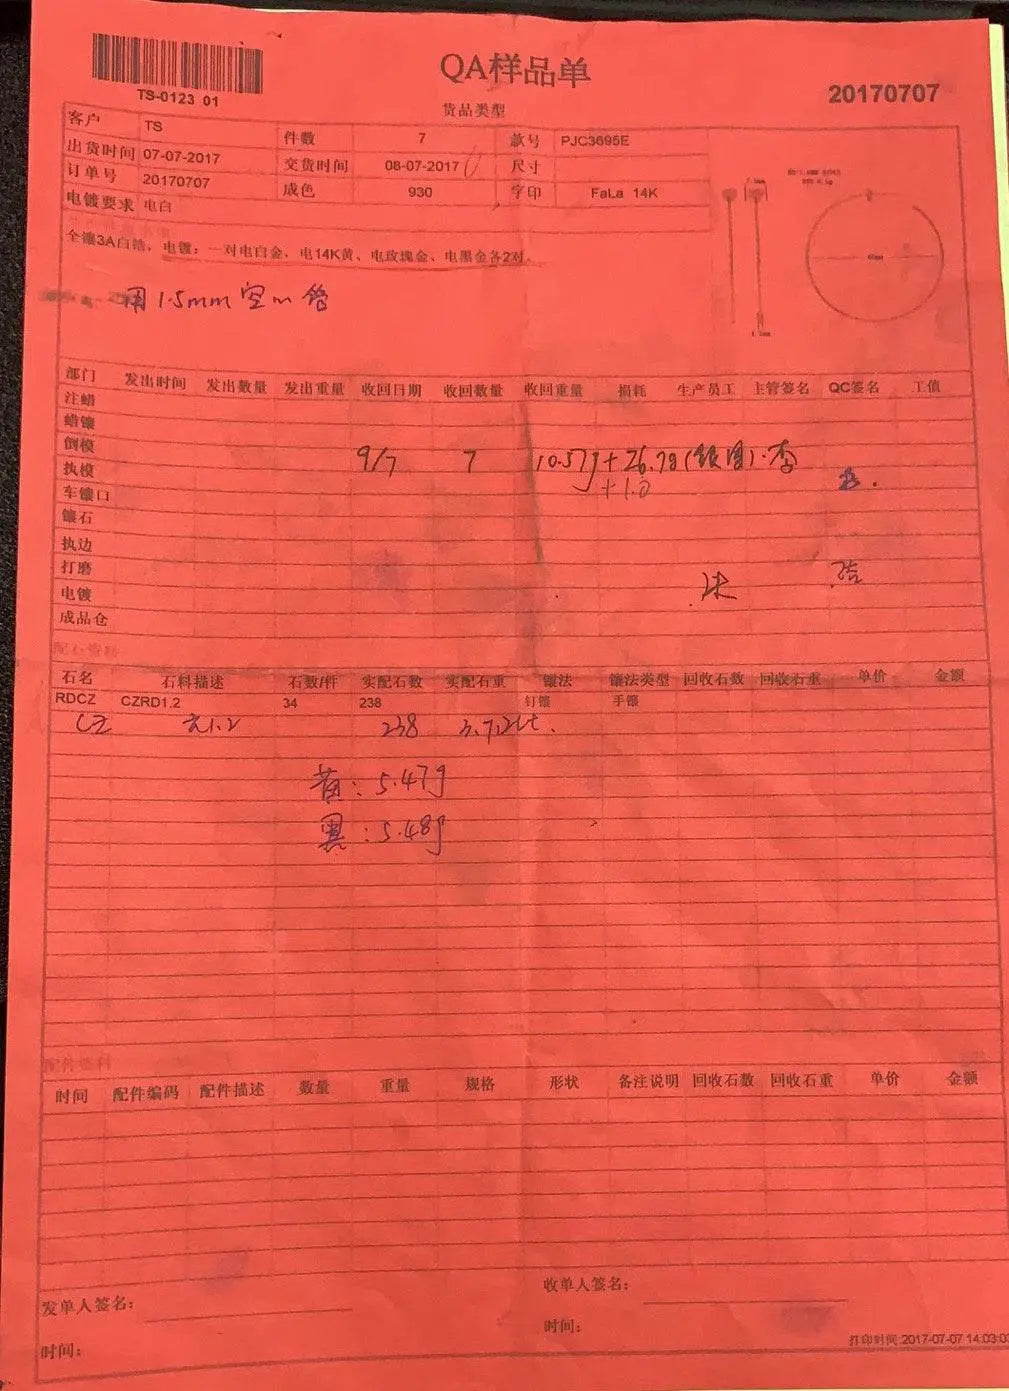 QA样品单
TS-0123 01
货品类型
20170707
客户 TS 件数 7 款号 PJC3695E
出货时间 07-07-2017 交货时间 08-07-2017 尺寸
订单号 20170707 成色 930 字印 FaLa 14K
电镀要求 电白
全镶3A白锆，电镀：一对电白金，电14K黄、电玫瑰金、电黑金各2对。
用1.5mm空
部门 发出时间 发出数量 发出重量 收回日期 收回数量 收回重量 损耗 生产员工 主管签名 QC签名 工值
注蜡
蜡镶
倒模 9/7 7 10.57g+26.7g
执模 +1.0
车镶口
镶石
执边
打磨
电镀
成品仓
配石资料
石名 石料描述 石数/件 实配石数 实配石重 镶法 镶法类型 回收石数 回收石重 单价 金额
RDCZ CZRD1.2 34 238 钉镶 手镶
CZ 1.2 238 3.72ct.
黄：5.47g
黑：5.48g
配件资料
时间 配件编码 配件描述 数量 重量 规格 形状 备注说明 回收石数 回收石重 单价 金额
发单人签名： 收单人签名：
时间： 时间：
打印时间:2017-07-07 14:03:0